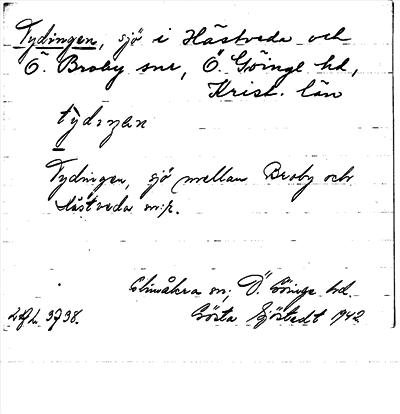 Tydingen, sjö i Hästveda och
Ö. Broby snr, Ö. Göinge hd,
Krist. län
Tydingen, sjö mellan Broby och
Hästveda snr.
Glimåkra sn, Ö. Göinge hd.
Gösta Sjöstedt 1942